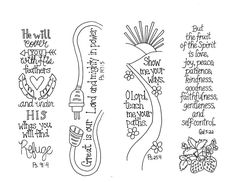 He will
cover
you
with his
feathers
and under
HIS
wings you
will find
Refuge
Ps. 91:4
Great is our Lord and mighty in power
Ps. 147:5
Show
me your
ways,
O LORD,
teach me
your
paths.
Ps. 25:4
But
the fruit
of the Spirit
is love,
joy, peace,
patience,
kindness,
goodness,
faithfulness,
gentleness,
and
self-control.
Gal. 5:22